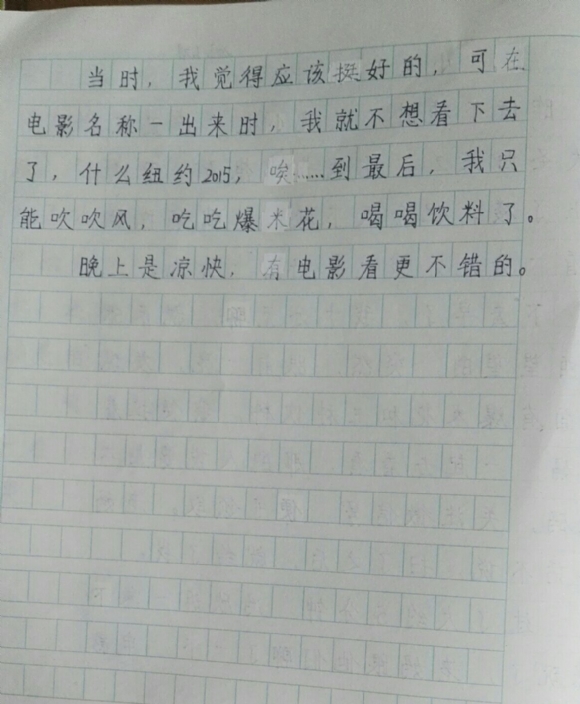 当时，我觉得应该挺好的，可在
电影名称一出来时，我就不想看下去
了，什么纽约2015，唉……到最后，我只
能吹吹风，吃吃爆米花，喝喝饮料了。
晚上是凉快，有电影看更不错的。